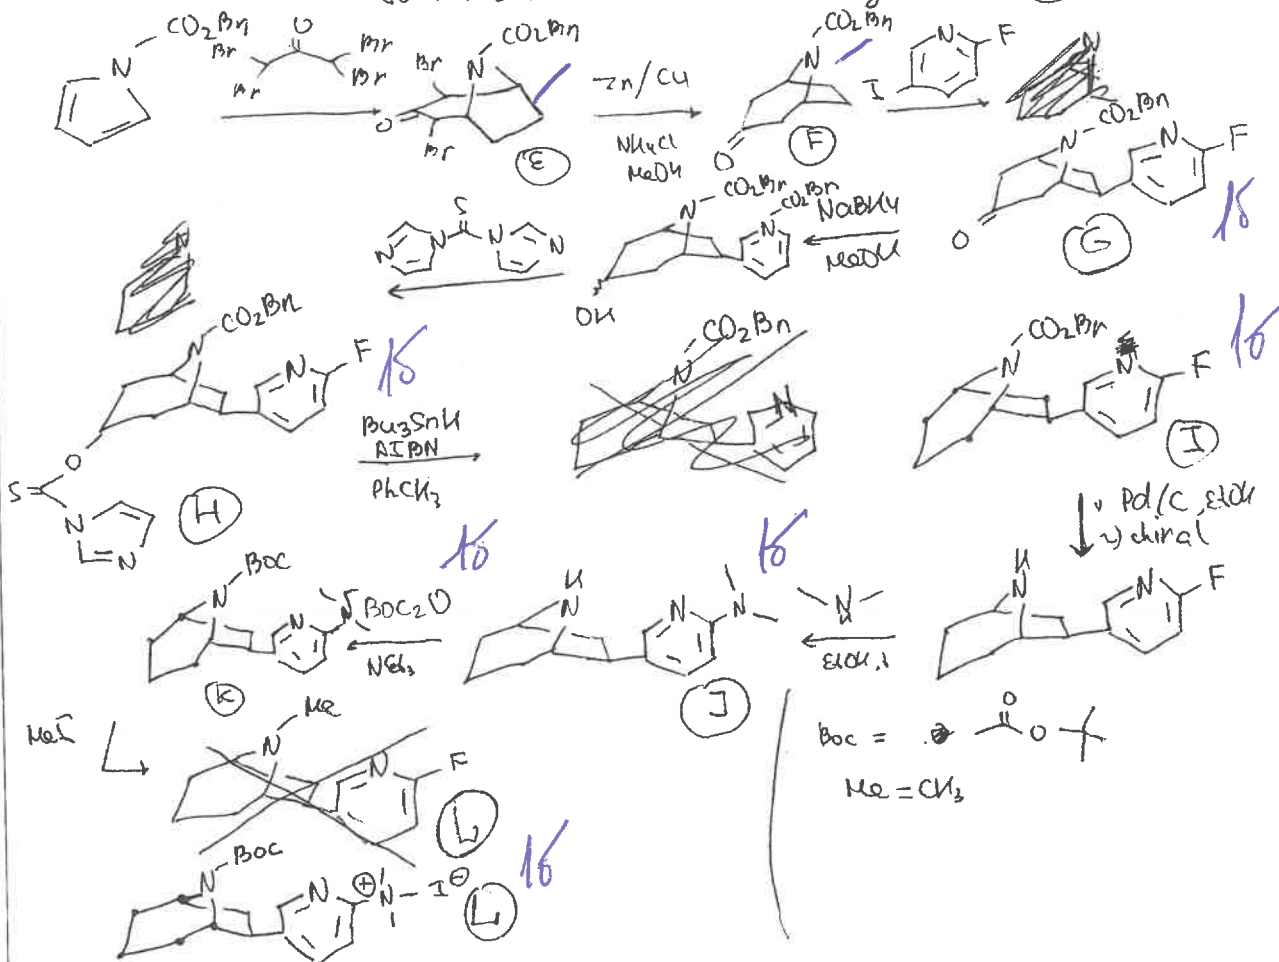 CO₂Bn
N
O
Br
Br
Br
Br
CO₂Bn
Br
N
O
Br
E
Zn/Cu
NH₄Cl
MeOH
CO₂Bn
N
O
F
I
N
F
CO₂Bn
N
N
F
O
G
1б
NaBH₄
MeOH
CO₂Bn
N
CO₂Bn
N
OH
S
N
N
N
N
CO₂Bn
N
N
F
1б
O
S
N
N
H
Bu₃SnH
AIBN
PhCH₃
CO₂Bn
N
N
CO₂Bn
N
N
F
1б
I
Pd/C, EtOH
2) chiral
H
N
N
F
N
H
EtOH, t
H
N
N
N
1б
J
Boc₂O
NEt₃
BOC
N
N
N
1б
K
MeI
Me
N
N
F
L
BOC
N
N
⊕
N
I⊖
L
1б
Boc =
O
O
Me = CH₃